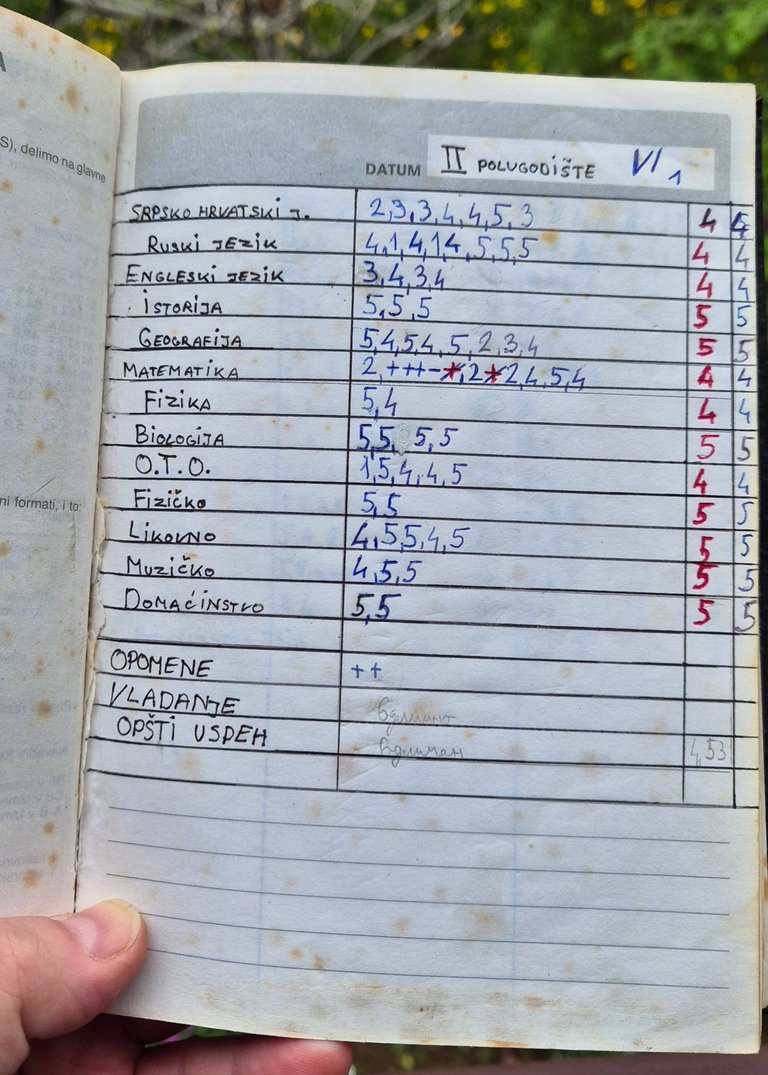 A
S), delimo na glavne
ni formati, i to:
DATUM II POLUGODIŠTE VI 1
SRPSKO HRVATSKI J. 2,3,3,4,4,5,3 4 5
RUSKI JEZIK 4,1,4,14,5,5,5 4 4
ENGLESKI JEZIK 3,4,3,4 4 4
ISTORIJA 5,5,5 5 5
GEOGRAFIJA 5,4,5,4,5,2,3,4 5 5
MATEMATIKA 2,+++-*,2*2,4,5,4 4 4
FIZIKA 5,4 4 4
BIOLOGIJA 5,5, 5,5 5 5
O.T.O. 1,5,4,4,5 4 4
FIZIČKO 5,5 5 5
LIKOVNO 4,5,5,4,5 5 5
MUZIČKO 4,5,5 5 5
DOMAĆINSTVO 5,5 5 5
OPOMENE ++
VLADANJE
OPŠTI USPEH одличан 4,53